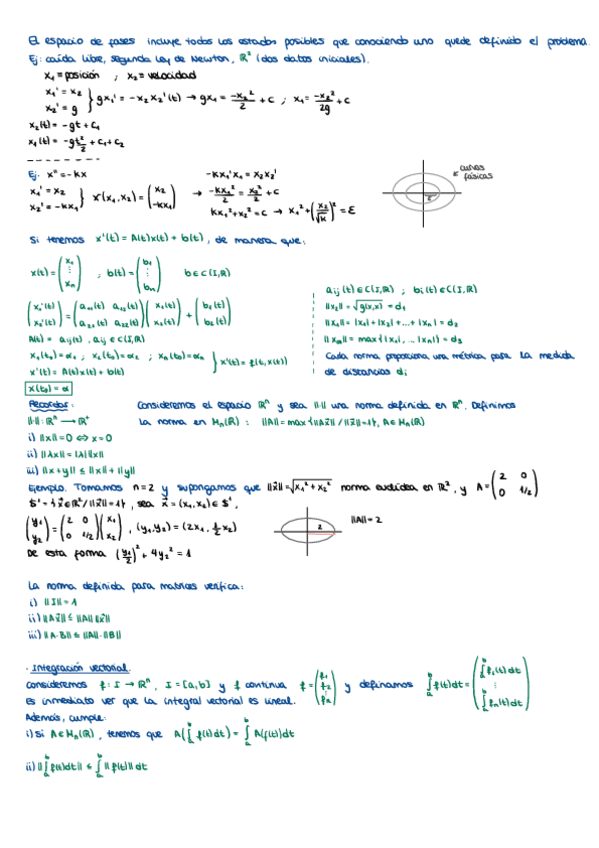 El espacio de fases incluye todos los estados posibles que conociendo uno quede definido el problema.
Ej: caída libre, segunda ley de Newton, ℝ² (dos datos iniciales).
x₁ = posición ; x₂ = velocidad
x₁' = x₂
x₂' = g } gx₁' = -x₂x₂'(t) → gx₁ = -x₂²/2 + c ; x₁ = -x₂²/2g + c
x₂(t) = -gt + c₁
x₁(t) = -gt²/2 + c₁ + c₂
Ej. x'' = -kx
x₁' = x₂
x₂' = -kx₁ } x'(x₁, x₂) = (x₂ -kx₁)
-kx₁'x₁ = x₂x₂'
→ -kx₁²/2 = x₂²/2 + c
kx₁² + x₂² = c → x₁² + (x₂/√k)² = E
curvas fásicas
Si tenemos x'(t) = A(t)x(t) + b(t), de manera que:
x(t) = (x₁ ⋮ xₙ) ; b(t) = (b₁ ⋮ bₙ) b ∈ C(I,ℝ)
(x₁'(t) x₂'(t)) = (a₁₁(t) a₁₂(t) a₂₁(t) a₂₂(t)) (x₁(t) x₂(t)) + (b₁(t) b₂(t))
A(t) = aᵢⱼ(t), aᵢⱼ ∈ C(I,ℝ)
x₁(t₀) = α₁ ; x₂(t₀) = α₂ ; xₙ(t₀) = αₙ
x'(t) = A(t)x(t) + b(t) } x'(t) = f(t, x(t))
x(t₀) = α
aᵢⱼ(t) ∈ C(I,ℝ) ; bᵢ(t) ∈ C(I,ℝ)
||x₂|| = √g(x,x) = d₁
||x₁|| = |x₁| + |x₂| + ... + |xₙ| = d₂
||x∞|| = max{|x₁|, ... |xₙ|} = d₃
Cada norma proporciona una métrica para la medida
de distancias dᵢ
Recordar:
||·||: ℝⁿ → ℝ⁺
i) ||x|| = 0 ⇔ x = 0
ii) ||λx|| = |λ| ||x||
iii) ||x+y|| ≤ ||x|| + ||y||
Consideremos el espacio ℝⁿ y sea ||·|| una norma definida en ℝⁿ. Definimos
la norma en Mₙ(ℝ) : ||A|| = max{||Ax̄|| / ||x̄|| = 1}, A ∈ Mₙ(ℝ)
Ejemplo. Tomamos n=2 y supongamos que ||x̄|| = √x₁² + x₂² norma euclídea en ℝ², y A = (2 0 0 1/2)
S¹ = {x̄ ∈ ℝ² / ||x̄|| = 1}, sea x̄ = (x₁, x₂) ∈ S¹,
(y₁ y₂) = (2 0 0 1/2) (x₁ x₂), (y₁, y₂) = (2x₁, ½x₂)
2
||A|| = 2
De esta forma (y₁/2)² + 4y₂² = 1
La norma definida para matrices verifica:
i) ||I|| = 1
ii) ||Ax̄|| ≤ ||A|| ||x̄||
iii) ||A·B|| ≤ ||A||·||B||
· Integración vectorial.
Consideremos f: I → ℝⁿ, I = [a,b] y f continua f = (f₁ f₂ ⋮ fₙ) y definamos ∫ₐᵇ f(t)dt = (∫ₐᵇ f₁(t)dt ⋮ ∫ₐᵇ fₙ(t)dt)
Es inmediato ver que la integral vectorial es lineal.
Además, cumple:
i) Si A ∈ Mₙ(ℝ), tenemos que A(∫ₐᵇ f(t)dt) = ∫ₐᵇ A f(t)dt
ii) ||∫ₐᵇ f(t)dt|| ≤ ∫ₐᵇ ||f(t)|| dt